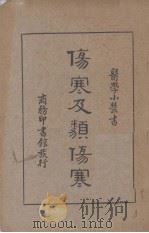 醫學小叢書
傷寒及類傷寒
商務印書館發行